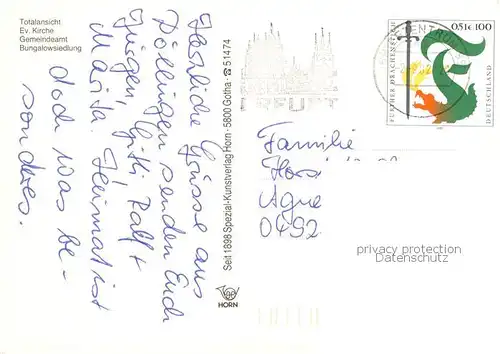 Totalansicht
Ev. Kirche
Gemeindeamt
Bungalowsiedlung
Herzliche Grüsse aus
Döllingen senden Euch
Jürgen, Gitti Ralf +
Marita. Heimat ist
doch was be-
sonderes.
Seit 1898 Spezial-Kunstverlag Horn · 5800 Gotha · ☎ 51474
HORN
FURTHER DRACHENSTICH
0,51€ 100
DEUTSCHLAND
Familie
Horst
Agne
0492
privacy protection
Datenschutz